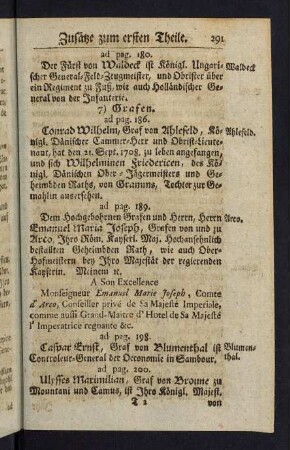 Zusätze zum ersten Theile. 291
ad pag. 180.
Der Fürst von Waldeck ist Königl. Ungari- Waldeck
scher General-Feld-Zeugmeister, und Obrister über
ein Regiment zu Fuß, wie auch Holländischer Ge-
neral von der Infanterie.
7) Grafen.
ad pag. 186.
Conrad Wilhelm, Graf von Ahlefeld, Kö- Ahlefeld.
nigl. Dänischer Cammer-Herr und Obrist-Lieute-
naut, hat den 21. Sept. 1708. zu leben angefangen,
und sich Wilhelminen Friedericen, des Kö-
nigl. Dänischen Ober-Jägermeisters und Ge-
heimbden Raths, von Gramms, Tochter zur Ge-
mahlin ausersehen.
ad pag. 189.
Dem Hochgebohrnen Grafen und Herrn, Herrn Arco.
Emanuel Maria Joseph, Grafen von und zu
Arco, Ihro Röm. Kayserl. Maj. Hochansehnlich
bestallten Geheimbden Rath, wie auch Ober-
Hofmeistern bey Ihro Majestät der regierenden
Kayserin. Meinem ꝛc.
A Son Excellence
Monseigneur Emanuel Marie Joseph, Comte
d'Arco, Conseiller privé de Sa Majesté Imperiale,
comme aussi Grand-Maitre d'Hotel de Sa Majesté
l'Imperatrice regnante &c.
ad pag. 198.
Caspar Ernst, Graf von Blumenthal ist Blumen-
Controleur-General der Oeconomie in Sambour. thal.
ad pag. 200.
Ulysses Maximilian, Graf von Broune zu
Mountani und Camus, ist Ihro Königl. Majest.
T 2 von